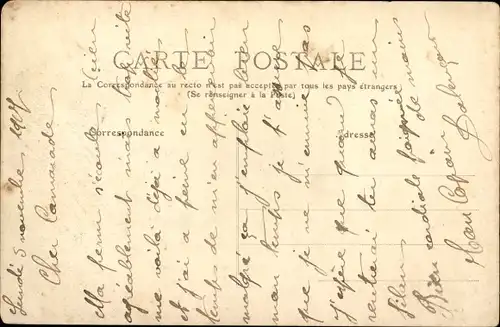 CARTE POSTALE
La Correspondance au recto n'est pas acceptée par tous les pays étrangers
(Se renseigner à la Poste)
Correspondance
Adresse
Jeudi 5 novembre 1908
Cher Camarade
Ma perm s'écoule bien
agréablement mais trop vite
me voilà déjà à moitié
et j'ai à peine eu le
temps de m'en apercevoir
malgré ça j'emploie bien
mon temps je t'assure
que je ne m'ennuie pas
J'espère que quand je
rentrerai tu auras un
filon
Bien cordiale poignée de mains
Mon Copain